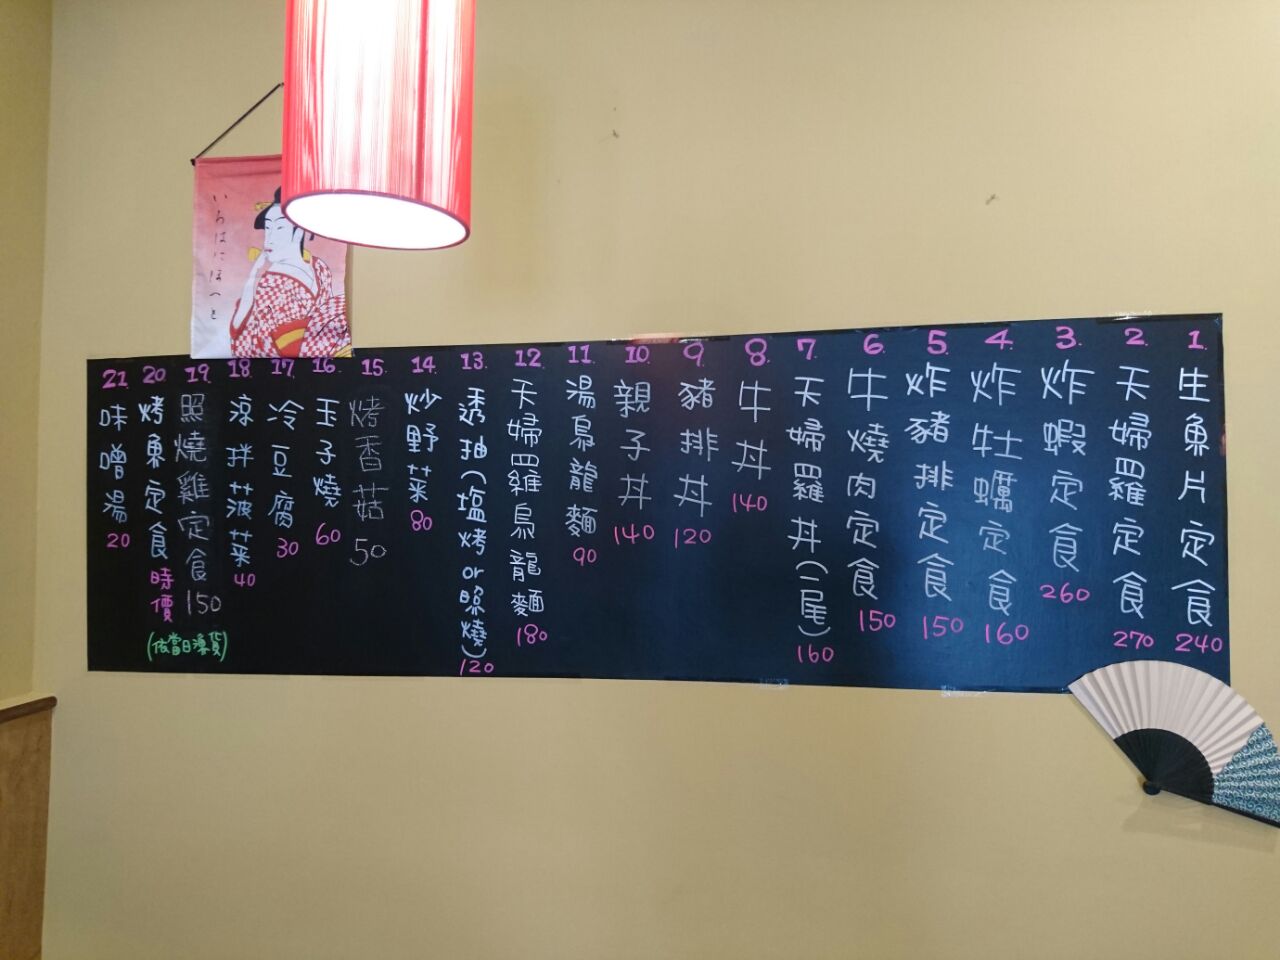 1.
生魚片定食
240
2.
天婦羅定食
270
3.
炸蝦定食
260
4.
炸牡蠣定食
160
5.
炸豬排定食
150
6.
牛燒肉定食
150
7.
天婦羅丼(二尾)
160
8.
牛丼
140
9.
豬排丼
120
10.
親子丼
140
11.
湯烏龍麵
90
12.
天婦羅烏龍麵
180
13.
透抽(塩烤or照燒)
120
14.
炒野菜
80
15.
烤香菇
50
16.
玉子燒
60
17.
冷豆腐
30
18.
涼拌菠菜
40
19.
照燒雞定食
150
20.
烤魚定食
時價
(依當日漁貨)
21
味噌湯
20
いろはにほへと